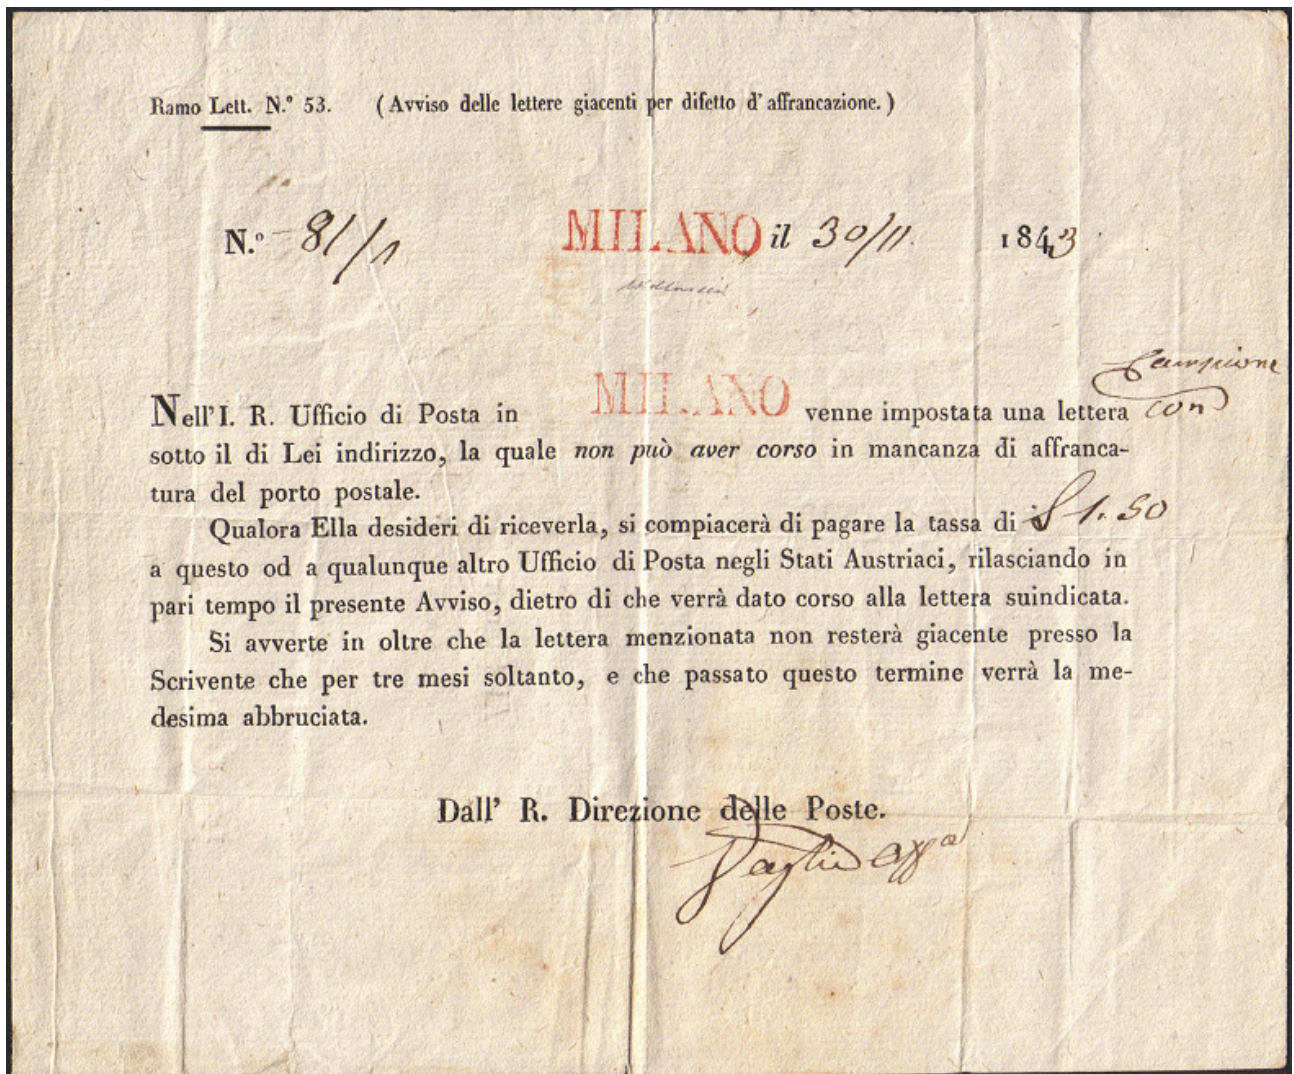 Ramo Lett. N.° 53. (Avviso delle lettere giacenti per difetto d'affrancazione.)
N.° 81/1 MILANO il 30/11. 1843
Campione
Nell'I. R. Ufficio di Posta in MILANO venne impostata una lettera con
sotto il di Lei indirizzo, la quale non può aver corso in mancanza di affranca-
tura del porto postale.
Qualora Ella desideri di riceverla, si compiacerà di pagare la tassa di £ 1.50
a questo od a qualunque altro Ufficio di Posta negli Stati Austriaci, rilasciando in
pari tempo il presente Avviso, dietro di che verrà dato corso alla lettera suindicata.
Si avverte in oltre che la lettera menzionata non resterà giacente presso la
Scrivente che per tre mesi soltanto, e che passato questo termine verrà la me-
desima abbruciata.
Dall' R. Direzione delle Poste.